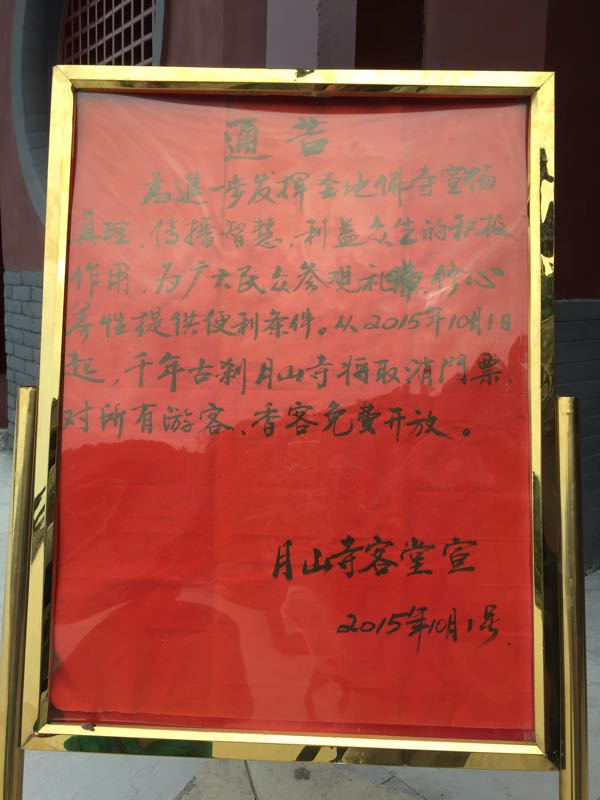 通告
为進一步发挥圣地佛寺宣扬
真理，传播智慧，利益众生的积极
作用，为广大民众参观礼藏修心
养性提供便利条件。从2015年10月1日
起，千年古刹月山寺将取消門票，
对所有游客、香客免费开放。
月山寺客堂宣
2015年10月1号